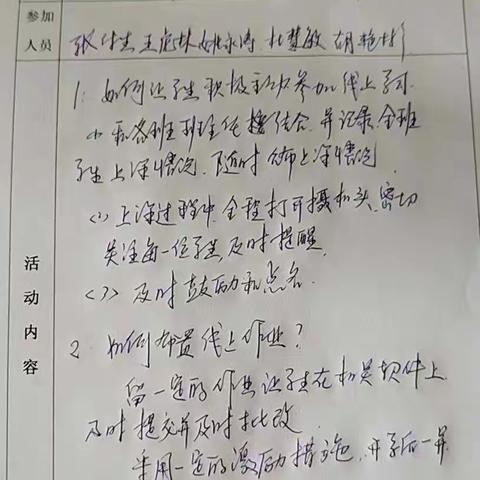 参加
人员
张付杰 王定林 姚永涛 杜慧敏 胡艳彬
1. 如何让学生积极主动参加线上学习.
(1) 和各班班主任 结合, 并记录全班
学生上课情况, 随时公布上课情况.
(2) 上课过程中, 全程打开摄相头, 密切
关注每一位学生及时提醒.
(3) 及时鼓励和点名.
活动内容
2. 如何布置线上作业?
留一定的作业让学生在相关软件上
及时提交并及时批改
采用一定的激励措施, 开学后一并